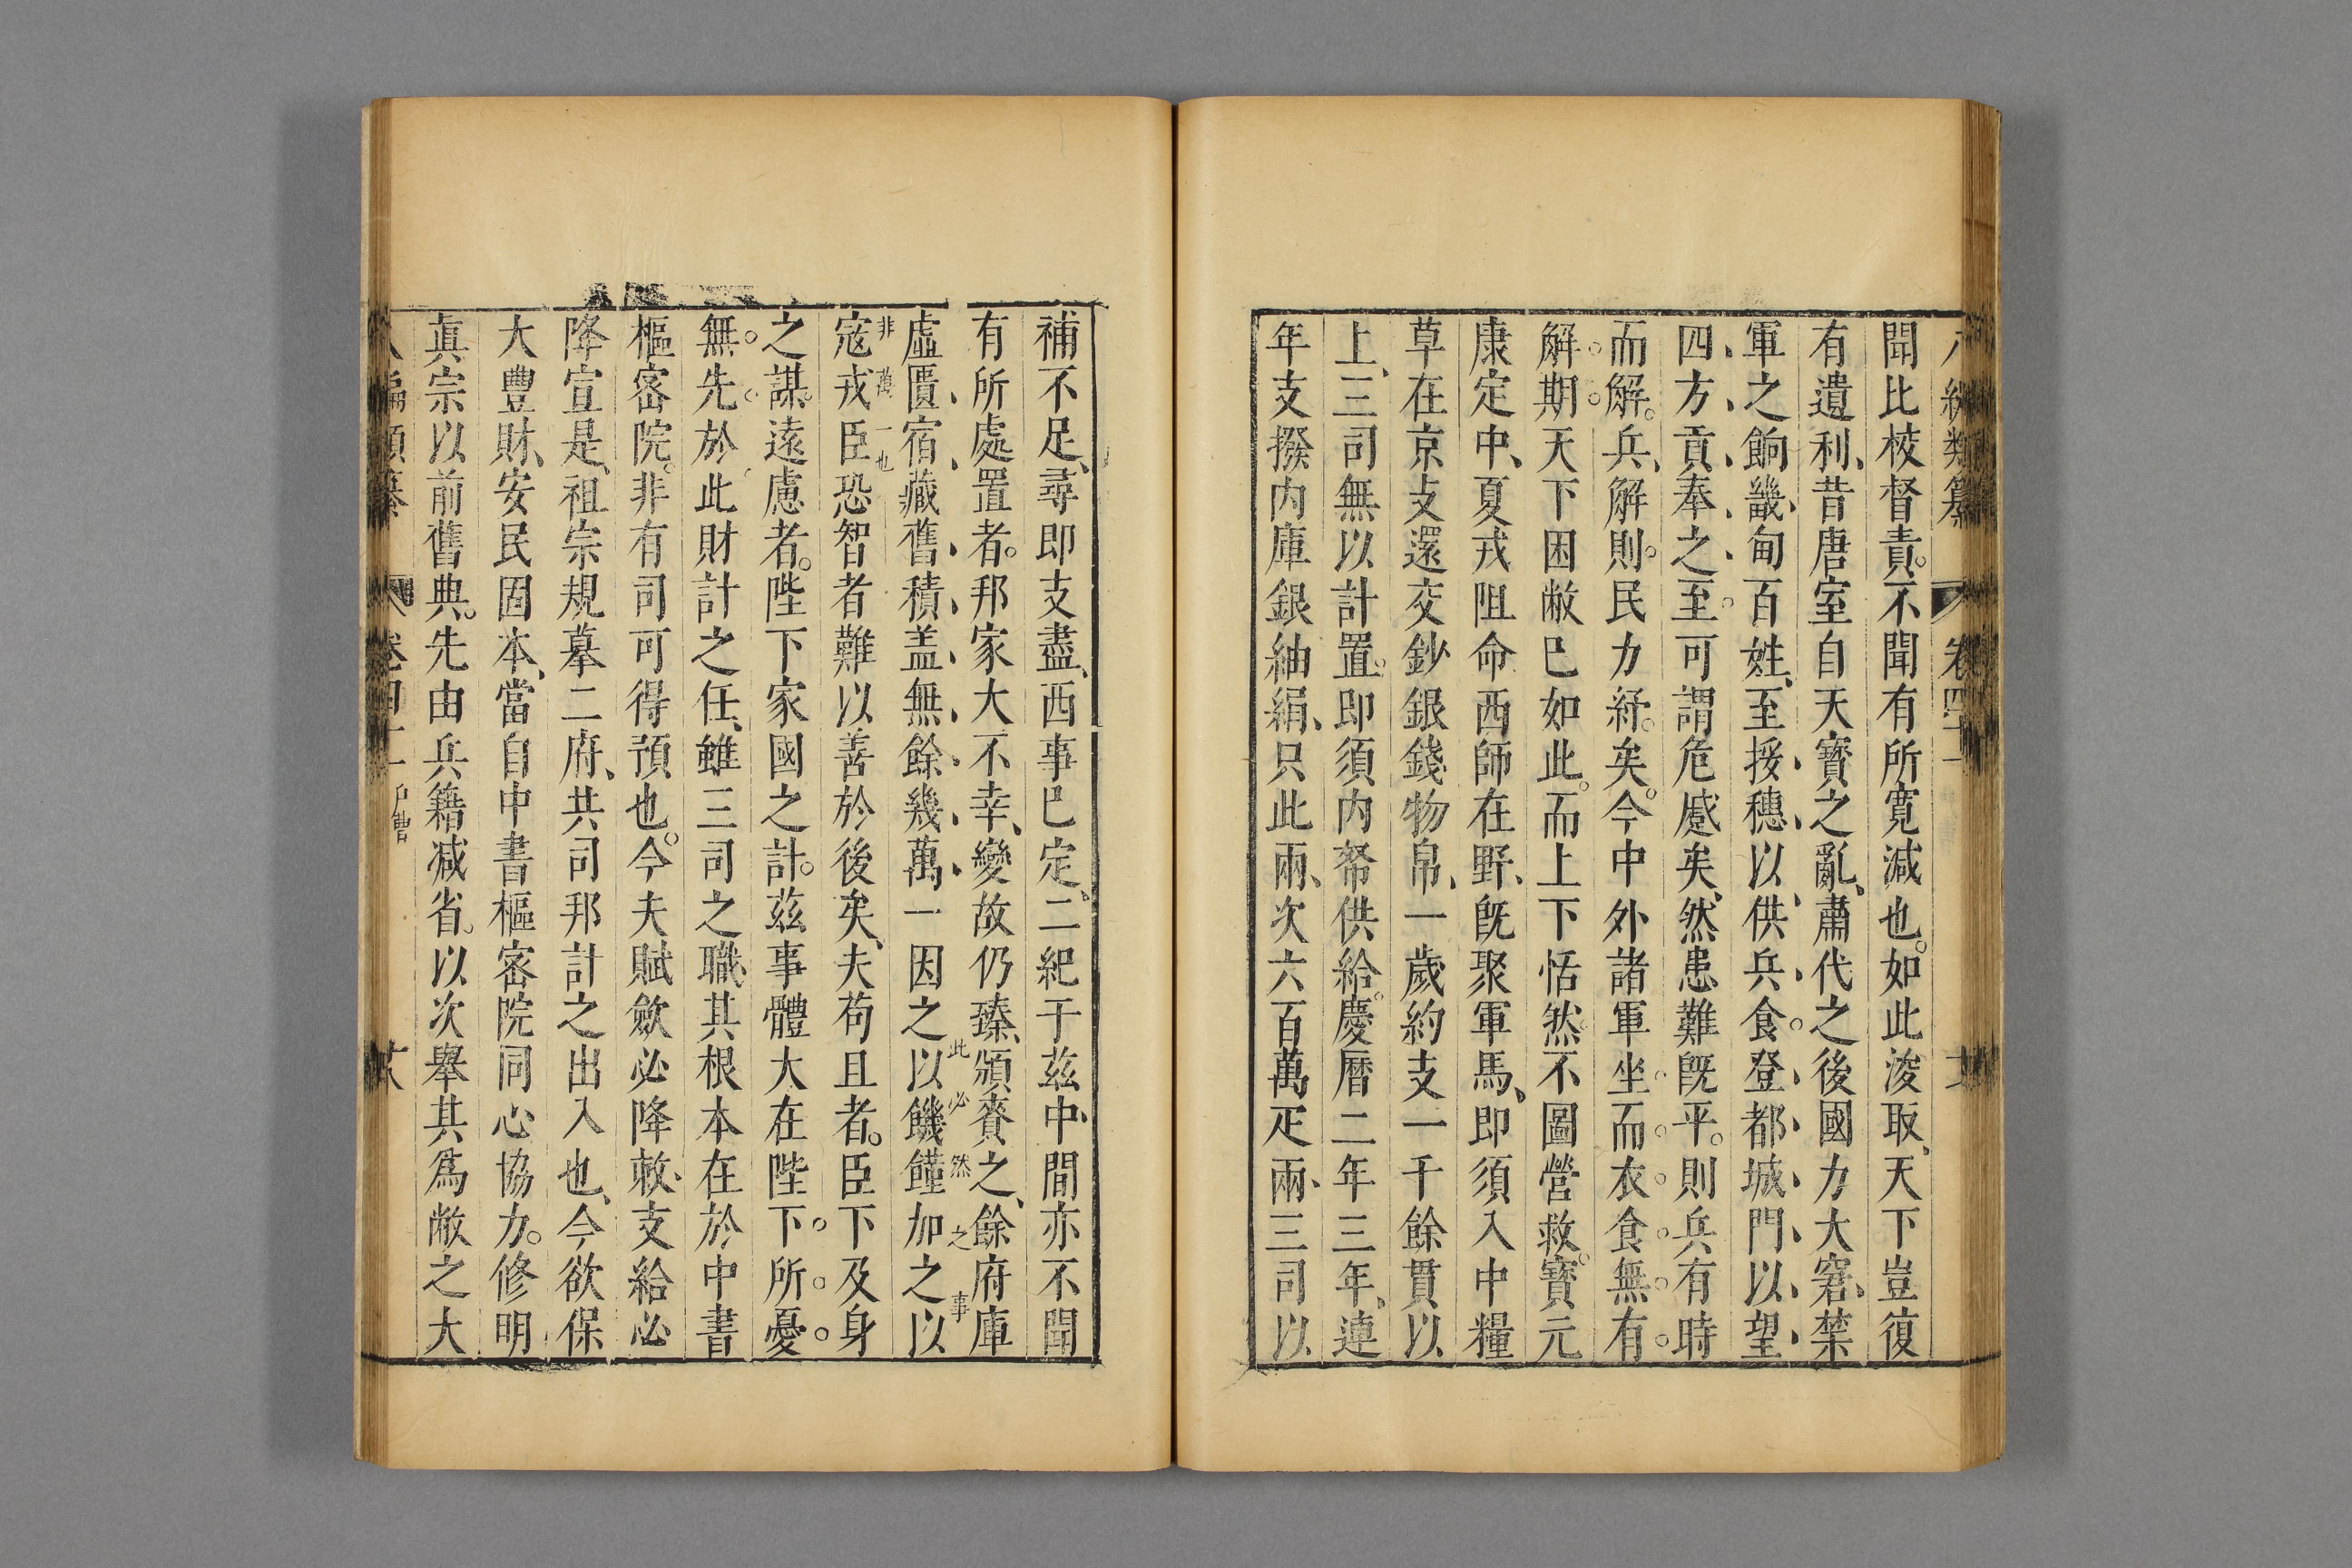 八編類纂 卷四十一
聞比校督責不聞有所寛減也如此浚取天下豈復
有遺利昔唐室自天寳之亂肅代之後國力大窘禁
軍之餉畿甸百姓至挼穗以供兵食登都城門以望
四方貢奉之至可謂危蹙矣然患難旣平則兵有時
而解兵解則民力紓矣今中外諸軍坐而衣食無有
解期天下困敝巳如此而上下恬然不圖營救寳元
康定中夏戎阻命西師在野旣聚軍馬即須入中糧
草在京支還交鈔銀錢物帛一歲約支一千餘貫以
上三司無以計置即須内帑供給慶曆二年三年連
年支撥内庫銀紬絹只此兩次六百萬疋兩三司以
補不足尋即支盡西事巳定二紀于茲中間亦不聞
有所處置者邦家大不幸變故仍臻頒賚之餘府庫
虛匱宿藏舊積盖無餘幾萬一因之以饑饉加之以
此必然之事
寇戎臣恐智者難以善於後矣夫苟且者臣下及身
非萬一也
之謀遠慮者陛下家國之計茲事體大在陛下所憂
無先於此財計之任雖三司之職其根本在於中書
樞密院非有司可得預也今夫賦斂必降敕支給必
降宣是祖宗規摹二府共司邦計之出入也今欲保
大豐財安民固本當自中書樞密院同心協力修明
眞宗以前舊典先由兵籍减省以次舉其爲敝之大
八編類纂 卷四十一 戶曹